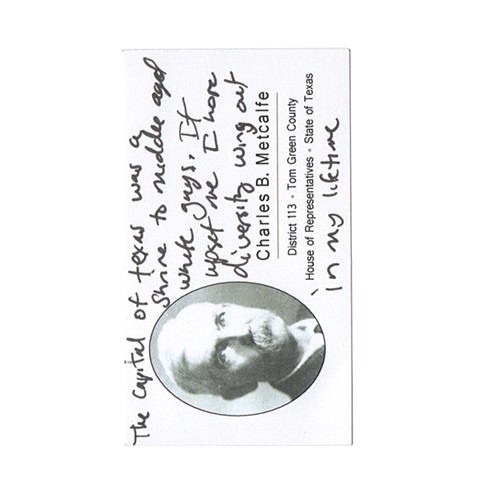 The capital of texas was a
shrine to middle aged
white guys. It
upset me I hope
diversity wins out
Charles B. Metcalfe
District 113 • Tom Green County
House of Representatives • State of Texas
in my lifetime